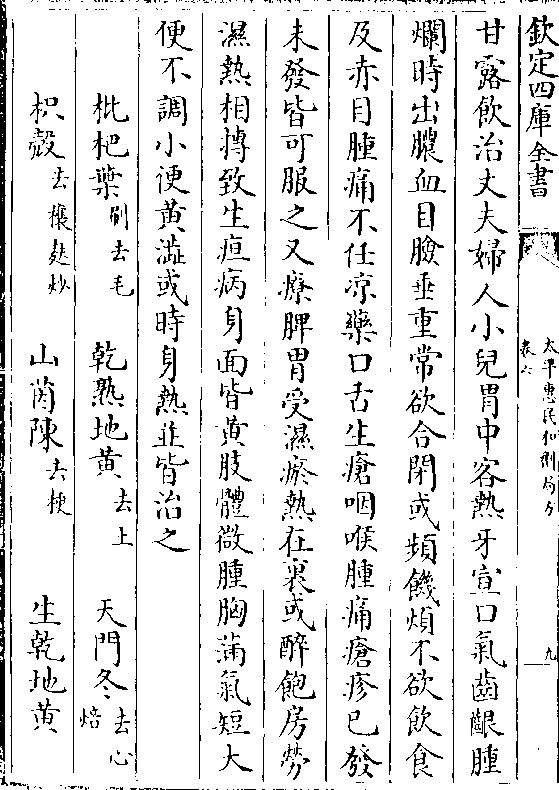 欽定四庫全書
太平惠民和劑局方
卷六
九
甘露飲治丈夫婦人小兒胃中客熱牙宣口氣齒齦腫
爛時出膿血目臉垂重常欲合閉或頻饑煩不欲飲食
及赤目腫痛不任凉藥口舌生瘡咽喉腫痛瘡疹已發
未發皆可服之又療脾胃受濕瘀熱在裏或醉飽房勞
濕熱相搏致生疸病身面皆黄肢體微腫胸滿氣短大
便不調小便黄澁或時身熱並皆治之
枇杷葉刷去毛 乾熟地黄去土 天門冬去心焙
枳殼去穰麩炒 山茵陳去梗 生乾地黄